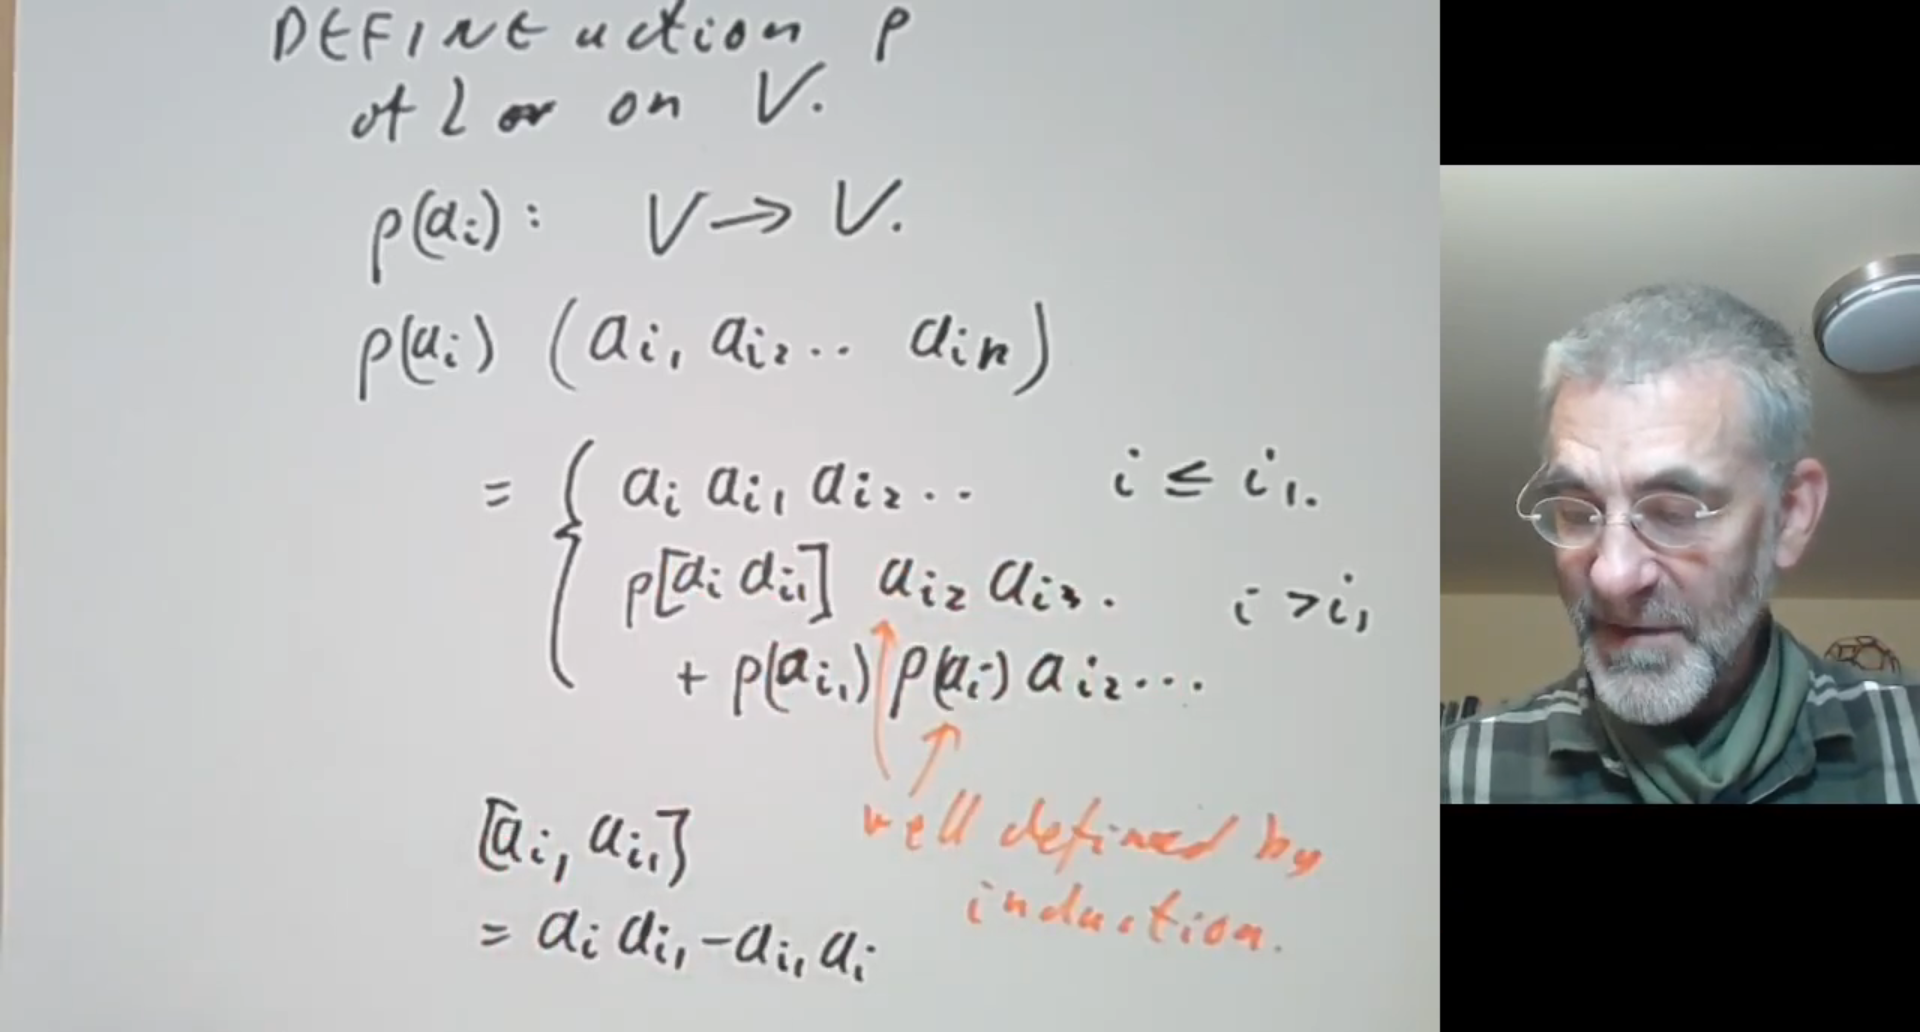 DEFINE action ρ
of L on V.
ρ(a_i): V → V.
ρ(a_i) (a_{i_1} a_{i_2} .. a_{i_n})
= { a_i a_{i_1} a_{i_2} .. i ≤ i_1.
ρ[a_i a_{i_1}] a_{i_2} a_{i_3}. i > i_1
+ ρ(a_{i_1}) ρ(a_i) a_{i_2} ...
well defined by
induction.
[a_i, a_{i_1}]
= a_i a_{i_1} - a_{i_1} a_i